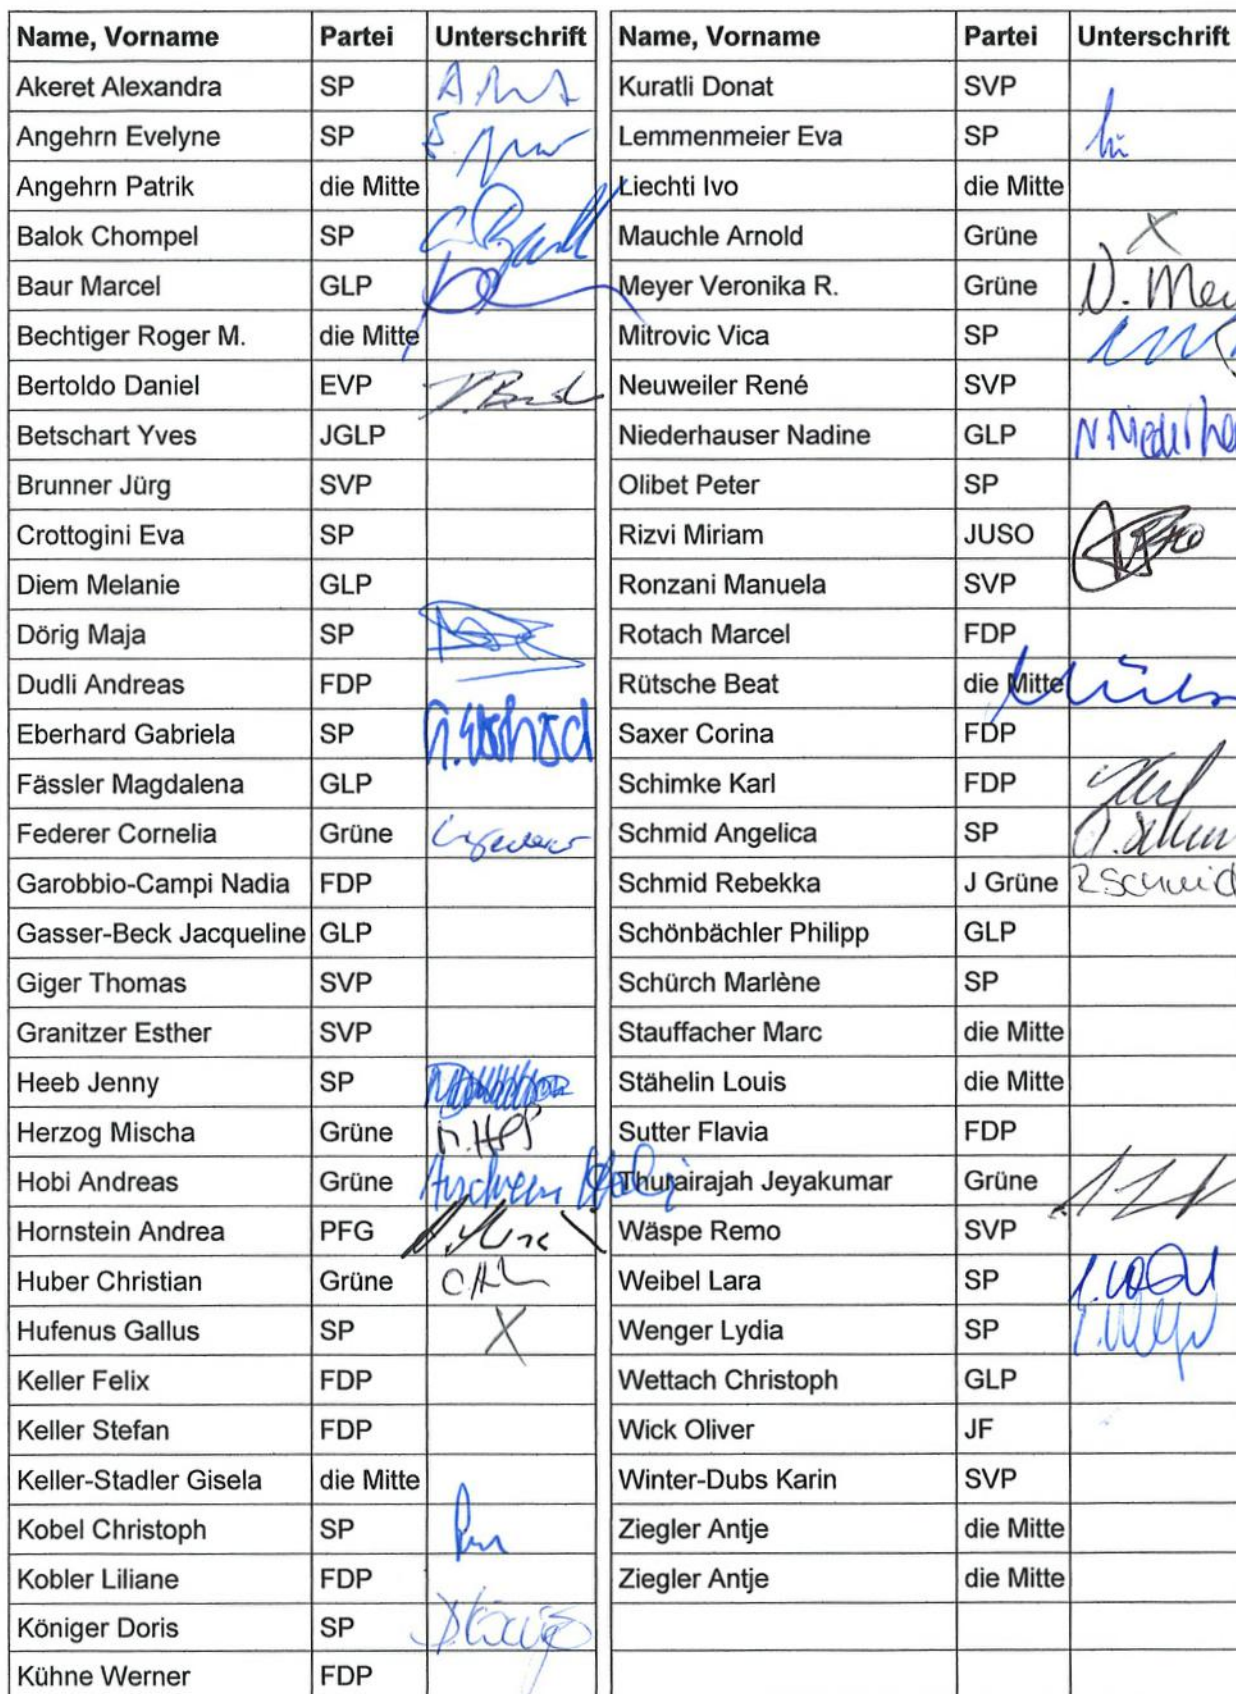 Name, Vorname Partei Unterschrift
Akeret Alexandra SP
Angehrn Evelyne SP
Angehrn Patrik die Mitte
Balok Chompel SP
Baur Marcel GLP
Bechtiger Roger M. die Mitte
Bertoldo Daniel EVP
Betschart Yves JGLP
Brunner Jürg SVP
Crottogini Eva SP
Diem Melanie GLP
Dörig Maja SP
Dudli Andreas FDP
Eberhard Gabriela SP
Fässler Magdalena GLP
Federer Cornelia Grüne
Garobbio-Campi Nadia FDP
Gasser-Beck Jacqueline GLP
Giger Thomas SVP
Granitzer Esther SVP
Heeb Jenny SP
Herzog Mischa Grüne
Hobi Andreas Grüne Andreas Hobi
Hornstein Andrea PFG
Huber Christian Grüne
Hufenus Gallus SP X
Keller Felix FDP
Keller Stefan FDP
Keller-Stadler Gisela die Mitte
Kobel Christoph SP
Kobler Liliane FDP
Königer Doris SP
Kühne Werner FDP
Name, Vorname Partei Unterschrift
Kuratli Donat SVP
Lemmenmeier Eva SP
Liechti Ivo die Mitte
Mauchle Arnold Grüne X
Meyer Veronika R. Grüne V. Mey
Mitrovic Vica SP
Neuweiler René SVP
Niederhauser Nadine GLP N. Niederha
Olibet Peter SP
Rizvi Miriam JUSO
Ronzani Manuela SVP
Rotach Marcel FDP
Rütsche Beat die Mitte
Saxer Corina FDP
Schimke Karl FDP
Schmid Angelica SP
Schmid Rebekka J Grüne R Schmid
Schönbächler Philipp GLP
Schürch Marlène SP
Stauffacher Marc die Mitte
Stähelin Louis die Mitte
Sutter Flavia FDP
Thurairajah Jeyakumar Grüne
Wäspe Remo SVP
Weibel Lara SP
Wenger Lydia SP
Wettach Christoph GLP
Wick Oliver JF
Winter-Dubs Karin SVP
Ziegler Antje die Mitte
Ziegler Antje die Mitte